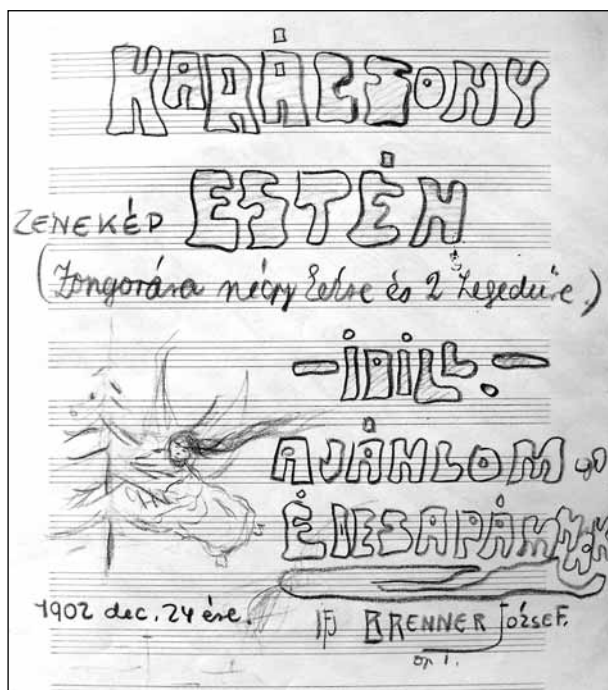 KARÁCSONY
ZENEKÉP ESTÉN
(Zongorára négy kézre és 2 hegedűre.)
—IDILL.—
AJÁNLOM
ÉDESAPÁMNAK
1902 dec. 24 ére. IFJ BRENNER JÓZSEF.
op 1.